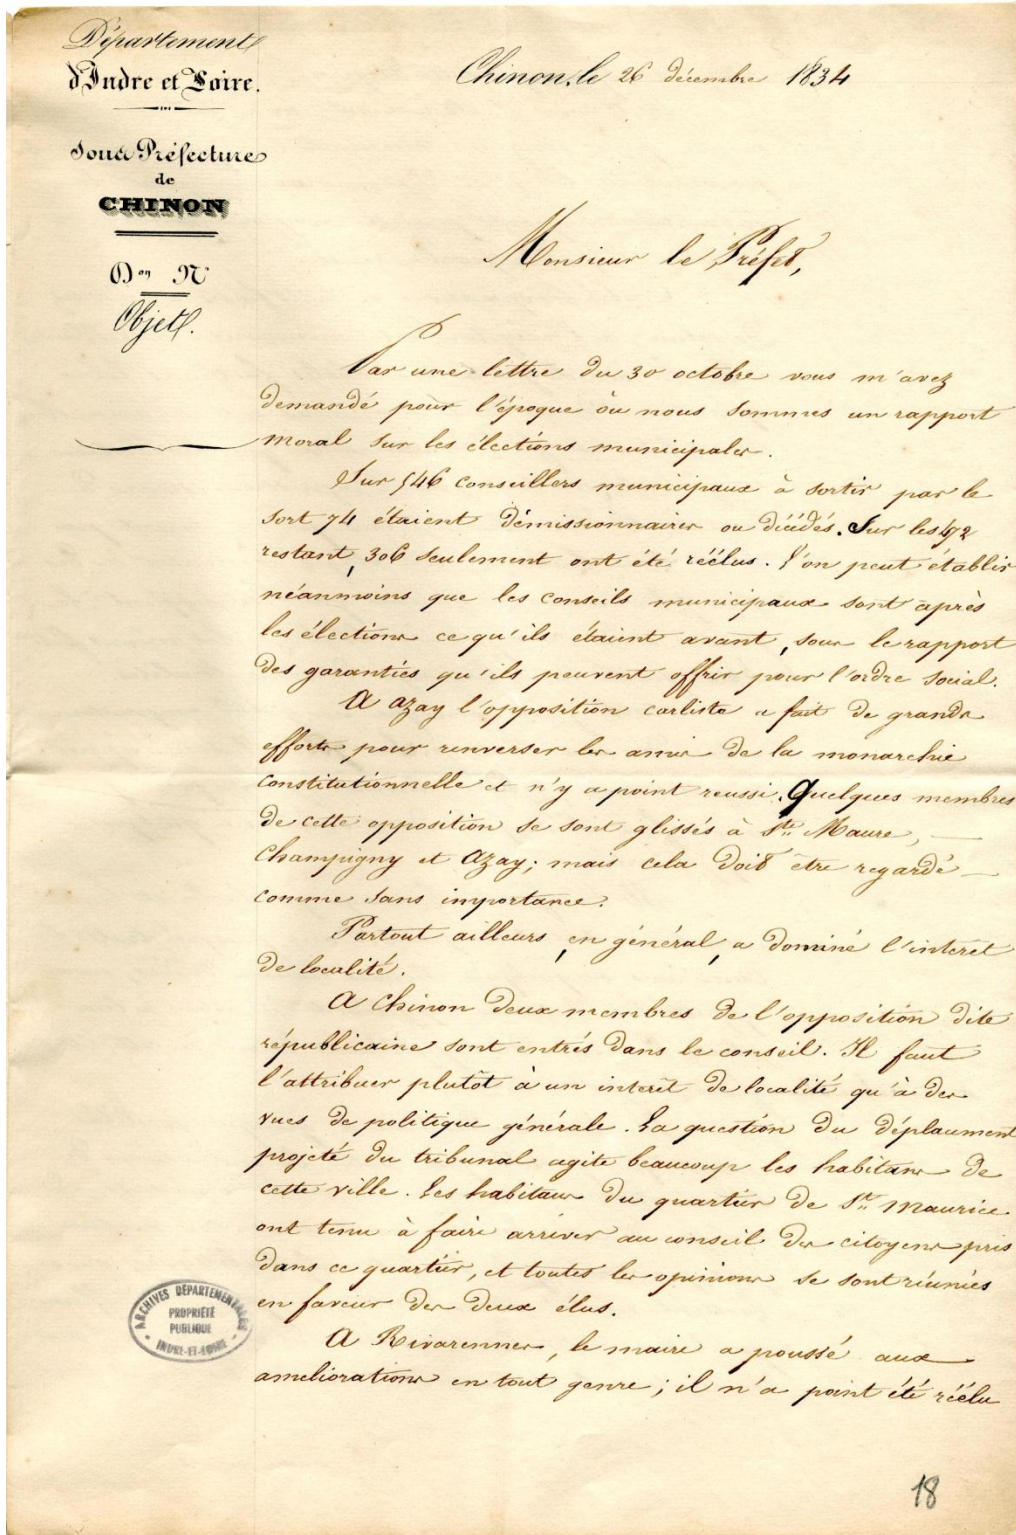 Département
d'Indre et Loire.
Sous Préfecture
de
CHINON
Don N
Objet.
Chinon, le 26 décembre 1834
Monsieur le Préfet,
Par une lettre du 30 octobre vous m'avez
demandé pour l'époque où nous sommes un rapport
moral sur les élections municipales.
Sur 546 conseillers municipaux à sortir par le
sort 74 étaient démissionnaires ou décédés. Sur les 472
restant, 306 seulement ont été réélus. L'on peut établir
néanmoins que les conseils municipaux sont après
les élections ce qu'ils étaient avant, sous le rapport
des garanties qu'ils peuvent offrir pour l'ordre social.
A azay l'opposition carliste a fait de grands
efforts pour renverser les amis de la monarchie
constitutionnelle et n'y a point reussi. Quelques membres
de cette opposition se sont glissés à Ste Maure,
Champigny et Azay; mais cela doit être regardé
comme sans importance.
Partout ailleurs, en général, a dominé l'interet
de localité.
A Chinon deux membres de l'opposition dite
républicaine sont entrés dans le conseil. Il faut
l'attribuer plutôt à un interêt de localité qu'à des
vues de politique générale. La question du déplacement
projeté du tribunal agite beaucoup les habitans de
cette ville. Les habitans du quartier de St Maurice
ont tenu à faire arriver au conseil des citoyens pris
dans ce quartier, et toutes les opinions se sont réunies
en faveur des deux élus.
A Rivarennes, le maire a poussé aux
ameliorations en tout genre; il n'a point été réélu
ARCHIVES DÉPARTEMENTALES
PROPRIÉTÉ
PUBLIQUE
INDRE-ET-LOIRE
18